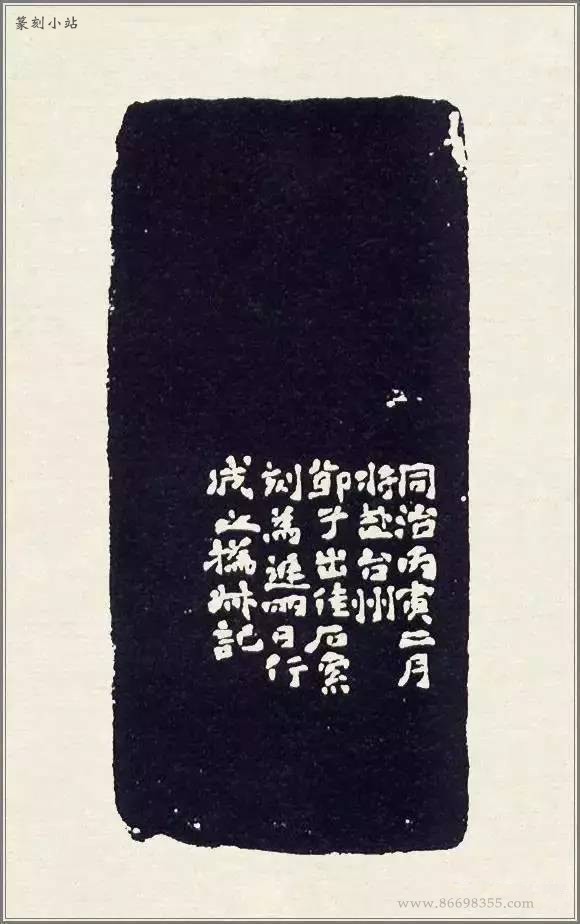 篆刻小站
同治丙寅二月
將赴台州
節子出佳石索
刻為遲兩日行
成之撝叔記
www.86698355.com